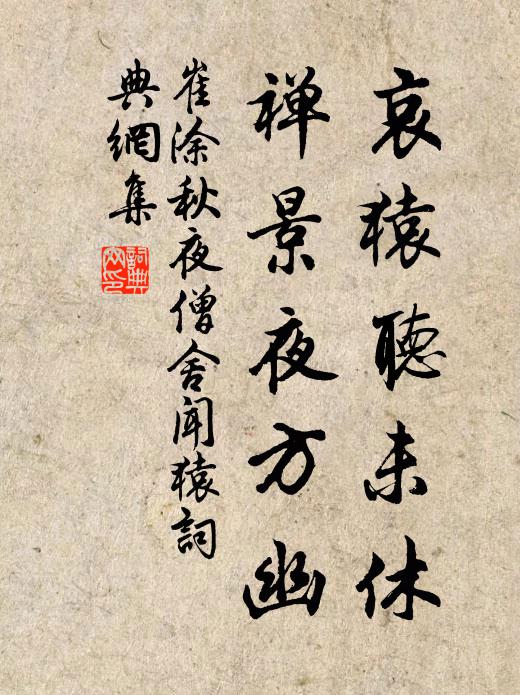 哀猿聽未休
禅景夜方幽
崔涂秋夜僧舍闻猿詞
典網集
詞典